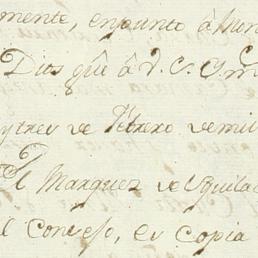 mente, en punto â Mon
Dios gûe â V. E. Ms
y tres de Febrero de mil
El Marquez de Squila
el Consejo, es copia